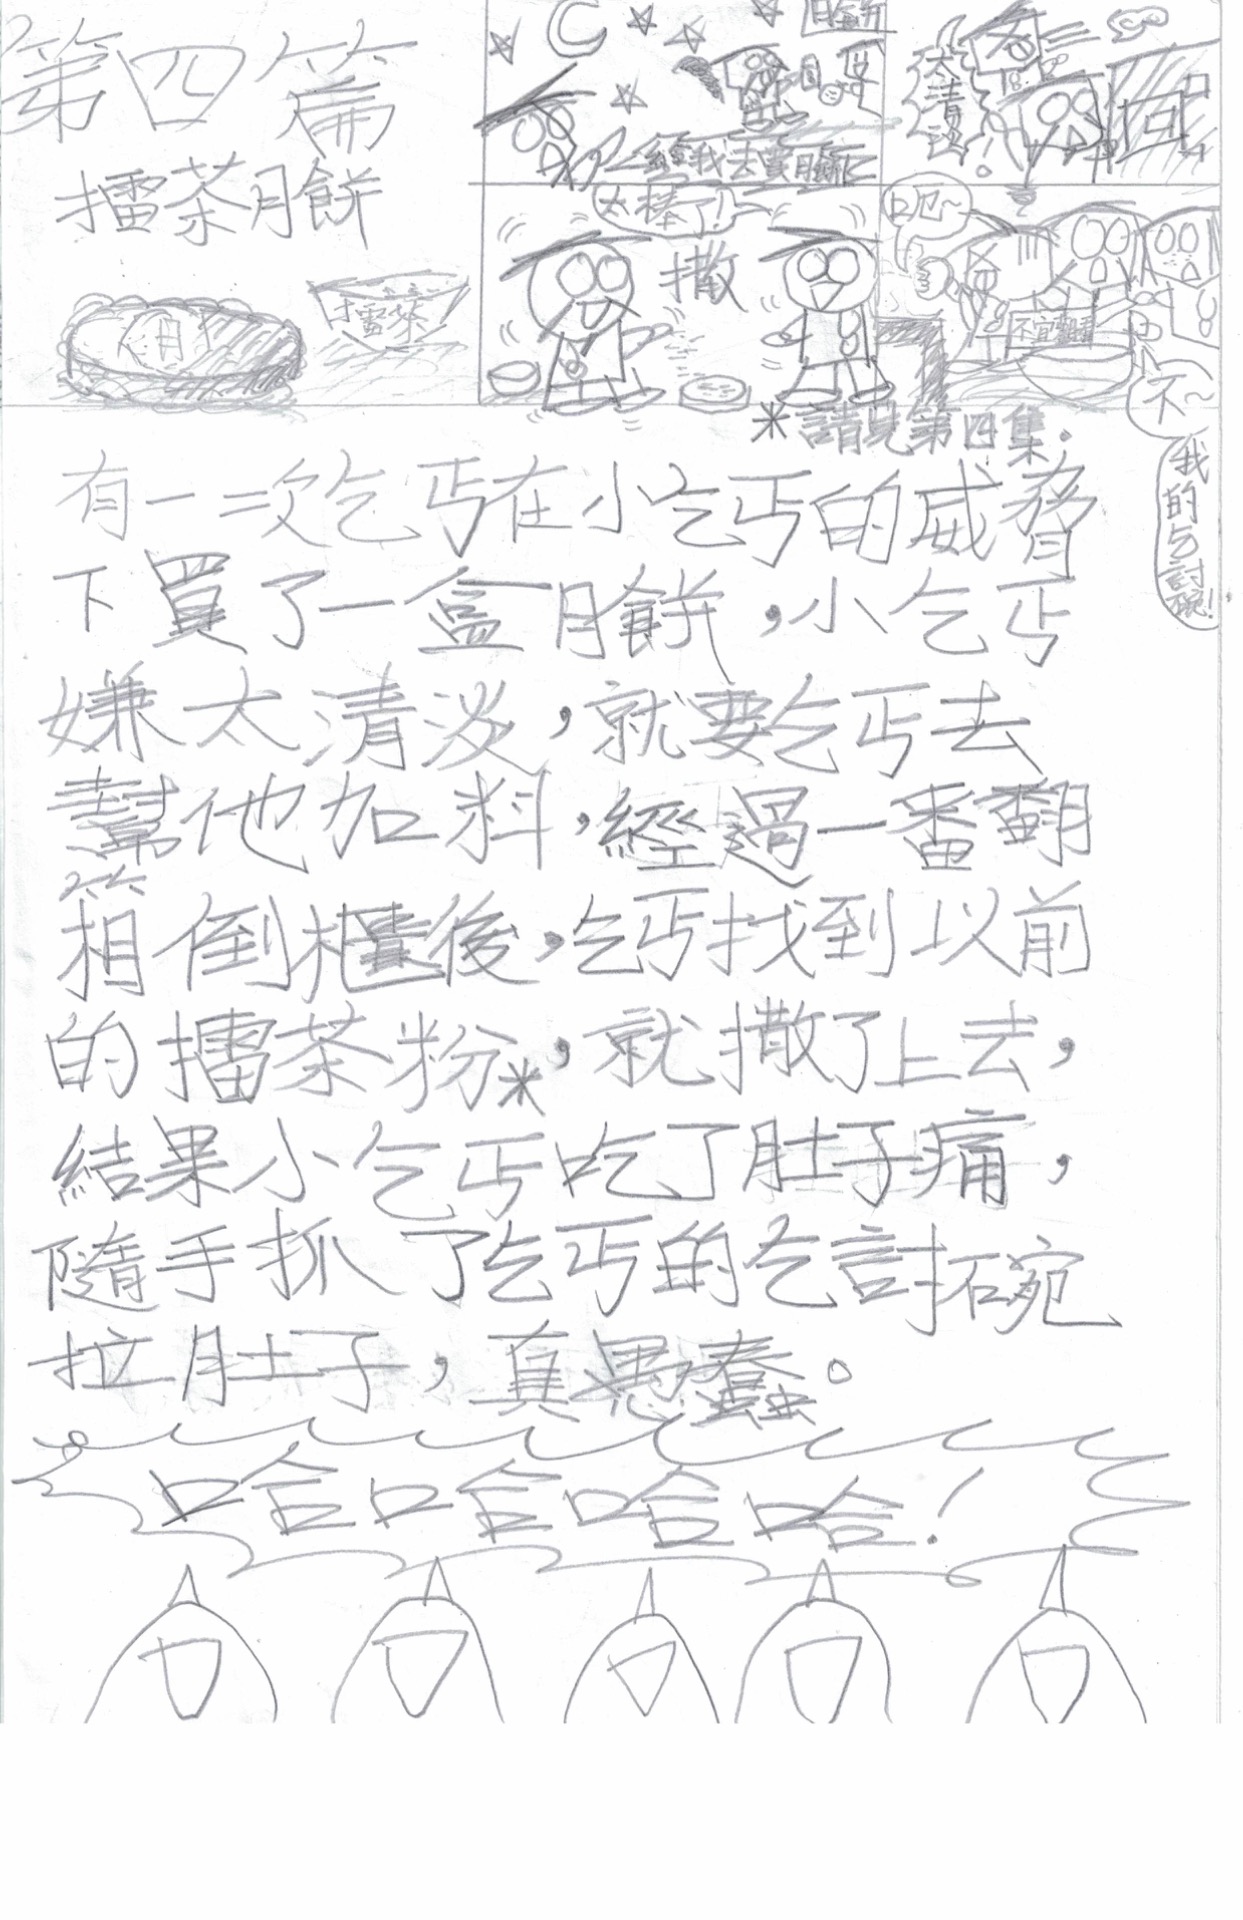 第四篇
擂茶月餅
月
擂茶
月餅
給我去買月餅
太清淡!
太棒了!
撒
不~
我的乞討碗!
*請見第四集.
有一次乞丐在小乞丐的威脅
下買了一盒月餅,小乞丐
嫌太清淡,就要乞丐去
幫他加料,經過一番翻
箱倒櫃後,乞丐找到以前
的擂茶粉*,就撒了上去,
結果小乞丐吃了肚子痛,
隨手抓了乞丐的乞討碗
拉肚子,真愚蠢。
哈哈哈哈!